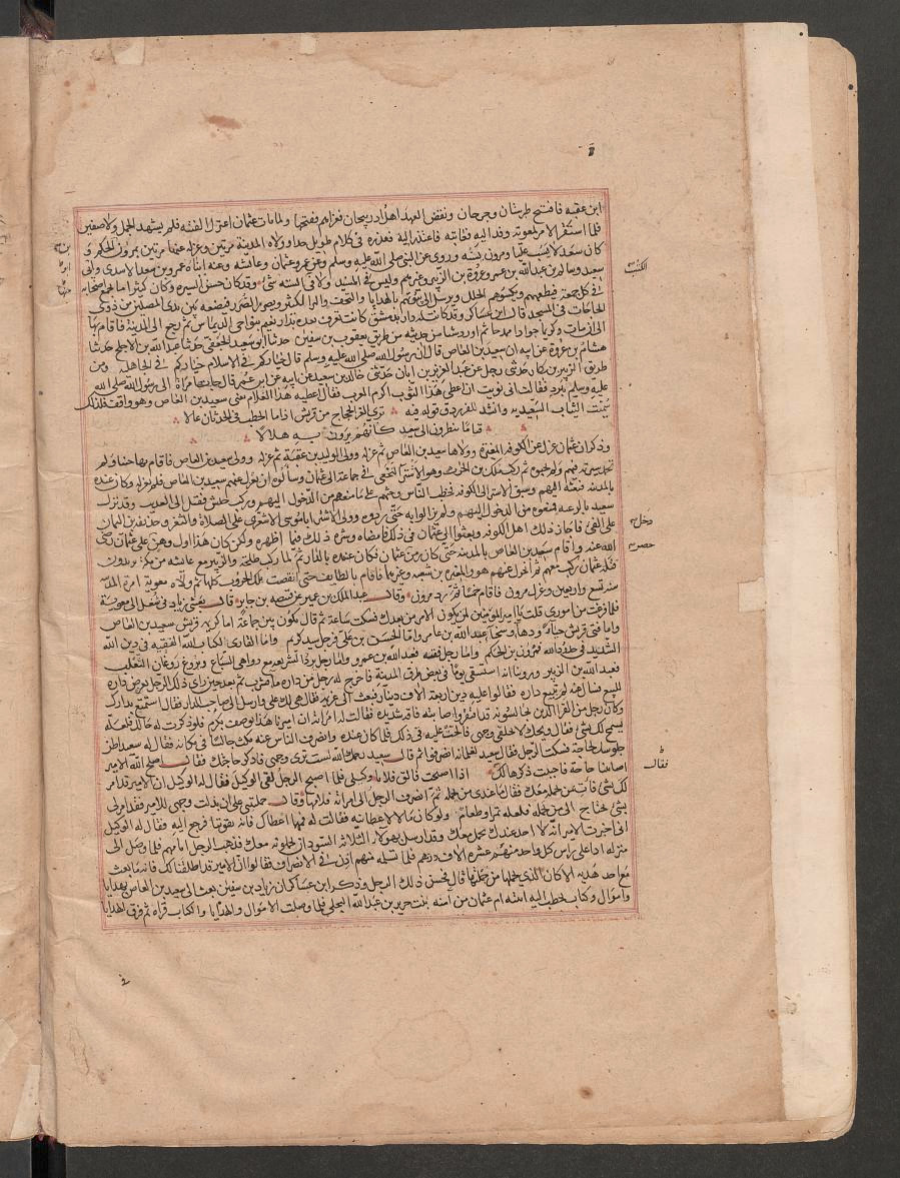 ابن عقبه فافتتح طبرستان وجرجان ونقض العهد اهل اذربيجان فغزاهم ففتحها ولما مات عثمان اعتزل الفتنه فلم يشهد الجمل ولا صفين
فلما استقر الامر لمعويه وفد اليه فعاتبه فاعتذر اليه فعذره في كلام طويل جدا وولاه المدينة مرتين وعزله عنها مرتين بمرون بن الحكم و
كان سعيد لا يسب عليا ومرون يسبه وروى عن النبي صلى الله عليه وسلم وعن عمر وعثمان وعائشه وعنه ابناه عمرو بن سعيد الاسدي وابي
سعيد وسالم بن عبدالله بن عمر وعروة بن الزبير وغيرهم وليس في المسند ولا في السته شيء وقد كان حسن السيره وكان كثيرا ما يجمع اصحابه
في كل جمعة فيطعمهم ويكسوهم الحلل ويرسل الى بيوتهم بالهدايا والتحف والبر الكثير ويصر الصرر فيضعه بين يدي المصلين من ذوي
الحاجات في المسجد قال ابن عساكر وقد كانت له دار بدمشق كانت تعرف بعده بدار نعيم بنواحي الديماس ثم رجع الى المدينة فاقام بها
الى ان مات وكريما جوادا ممدحا ثم اورد شيا من حديثه من طريق يعقوب بن سفين حدثنا ابو سعيد الجعفي حدثنا عبد الله بن الاجلح حدثنا
هشام بن عروة عن ابيه ان سعيد بن العاص قال ان رسول الله صلى الله عليه وسلم قال خياركم في الاسلام خياركم في الجاهلية ومن
طريق الزبير بن بكار حدثني رجل عن عبد العزيز بن ابان حدثني خالد بن سعيد عن ابيه عن ابن عمر قال جاءت امراة الى رسول الله صلى الله
عليه وسلم ببرد فقالت اني نويت ان اعطي هذا الثوب اكرم العرب فقال اعطيه هذا الغلام يعني سعيد بن العاص وهو واقف فلذلك
سميت الثياب السعيديه وانشد للفرزدق قوله فيه ترى الغر الجحاجح من قريش اذا ما الخطب في الحدثان عالا
قياما ينظرون الى سعيد كانهم يرون به هلالا
وذكر ان عثمان عزل عن الكوفه المغيرة وولاها سعيد بن العاص ثم عزله وولى الوليد بن عقبة ثم عزله وولى سعيد بن العاص فاقام بها حينا ولم
تحمد سيرته فيهم ولم يحبوه ثم ركب ملك بن الحارث وهو الاشتر النخعي في جماعة الى عثمان وسألوه ان يعزل عنهم سعيد بن العاص فلم يعزله وكان عنده
بالمدينه فبعثه اليهم وسبق الاشتر الى الكوفه فخطب الناس وحثهم على منعه من الدخول اليهم وركب في جيش
سعيد
على الفيء فاجاز ذلك اهل الكوفه وبعثوا الى عثمان في ذلك فامضاه وسره ذلك فيما اظهره ولكن كان هذا اول وهن على عثمان رضي
الله عنه واقام سعيد بن العاص بالمدينه حتى كان زمن عثمان فكان عنده بالدار ثم لما ركب طلحة والزبير مع عائشه من مكة يريدون
قتلة عثمان ركب معهم ثم انخزل عنهم هو والمغيرة بن شعبه وغيرهما فاقام بالطايف حتى انقضت تلك الحروب كلها ثم ولاه معوية امرة المدينه
سنه تسع واربعين وعزل مرون فاقام سبعا ثم رد مرون وقال عبد الملك بن عمير عن قبيصه بن جابر قال بعثني زياد في شغل الى معوية
فلما فرغت من اموري قلت يا امير المومنين لمن يكون الامر من بعدك فسكت ساعة ثم قال يكون بين جماعة اما كريم قريش سعيد بن العاص
واما فتى قريش حياء ودهاء وسخاء عبد الله بن عامر واما الحسن بن علي فرجل سيد كريم واما القارئ لكتاب الله الفقيه في دين الله
الشديد في حدود الله فمرون بن الحكم واما رجل فقيه فعبد الله بن عمر واما رجل يرد الشريعة مع دواهي السباع ويروغ روغان الثعلب
فعبد الله بن الزبير وروينا انه استسقى يوما في بعض طرق المدينة فاخرج له رجل من داره ماء فشرب ثم بعد حين راى ذلك الرجل يعرض داره
للبيع فسال عنه لم يبيع داره فقالوا عليه دين اربعة الاف دينار فبعث الى غريمه فقال هي لك علي وارسل الى صاحب الدار فقال استمتع بدارك
وكان رجل من القرا الذين يجالسونه قد افتقر واصابته فاقه شديده فقالت له امرأته ان اميرنا هذا يوصف بكرم فلو ذكرت له حالك فلعله
يسمح لك بشيء فقال ويحك لا تخلقي وجهي فالحت عليه في ذلك فجا فجلس اليه فلما انصرف الناس عنه مكث جالسا في مكانه فقال له سعيد اظن
جلوسك لحاجة فسكت الرجل فقال سعيد لغلمانه انصرفوا ثم قال سعيد رحمك الله لست ترى وجهي فاذكر حاجتك فقال اصلح الله الامير
اصابتنا حاجة فاحببت ذكرها لك اذا اصبحت فالق فلانا وكيلي فلما اصبح الرجل لقي الوكيل فقال له الوكيل ان الامير قد امر
لك بشيء فات بمن يحمله معك فقال ما عندي من يحمله ثم انصرف الرجل الى امرأته فلامها وقال حملتني على ان بذلت وجهي للامير فقد امر لي
بشيء يحتاج الى من يحمله فلعله تمرا وطعام ولو كان مالا لاعطانيه فقالت له فمهما اعطاك فانه يقوتنا فرجع اليه فقال له الوكيل
اني اخبرت الامير انه لا احد عندك يحمل معك وقد ارسل بهولاء الثلاثه السودان يحملونه معك فذهب الرجل امامهم فلما وصل الى
منزله اذا على راس كل واحد منهم عشره الاف درهم فلما تسلمه منهم اذن في الانصراف فقالوا ان الامير قد اطلقنا لك فانه ما بعث
مع احد هديه الا كان الذي يحملها من جملتها قال فحسن ذلك الرجل وذكر ابن عساكر ان زياد بن سفين بعث الى سعيد بن العاص بهدايا
واموال وكتاب يخطب اليه ابنته ام عثمان من امنه بنت جرير بن عبد الله البجلي فلما وصلت الاموال والهدايا والكتاب قراه ثم فرق الهدايا
فقال